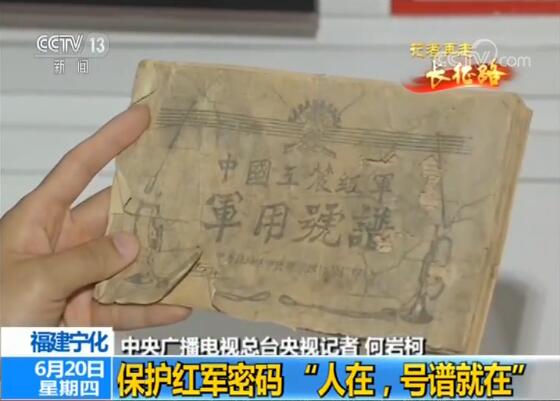 CCTV 13
新闻
记者再走
长征路
CCTV.com
中國工農红軍
軍用號譜
福建宁化
中央广播电视总台央视记者 何岩柯
6月20日
星期四
保护红军密码 “人在，号谱就在”